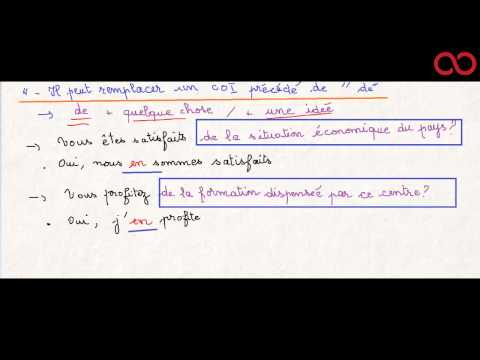 4 - Il peut remplacer un COI précédé de " dé
→ de + quelque chose / + une idée
→ Vous êtes satisfaits de la situation économique du pays ?
. Oui, nous en sommes satisfaits
→ Vous profitez de la formation dispensée par ce centre ?
. Oui, j'en profite